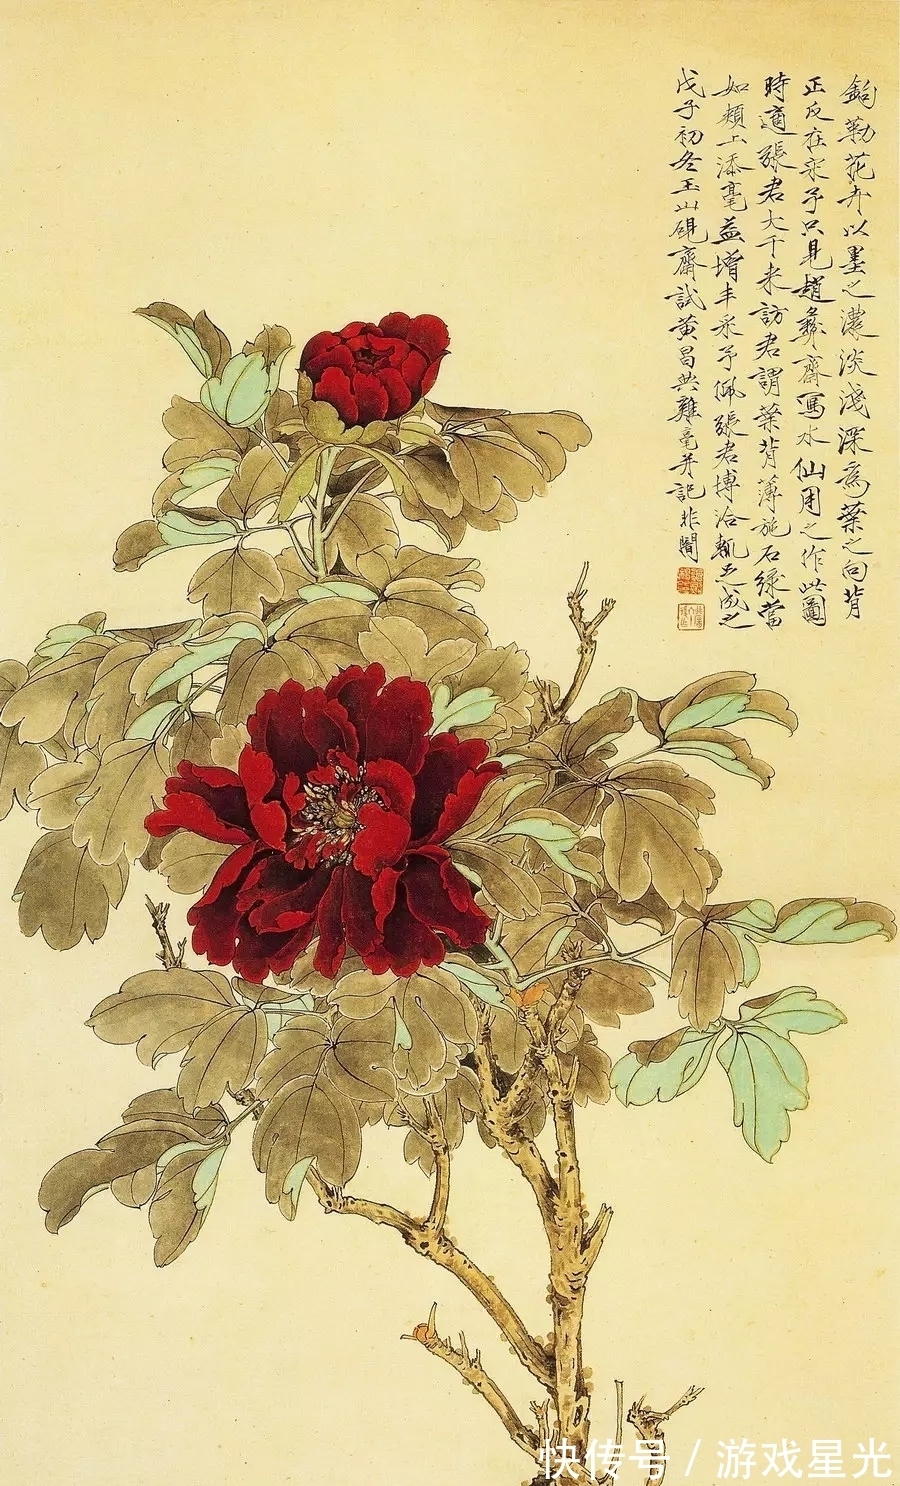 鉤勒花卉以墨之濃淡淺深爲葉之向背
正反在宋予只見趙彝齋寫水仙用之作此圖
時適張君大千來訪君謂葉背薄施石綠當
如頰上添毫益增丰采予佩張君博洽輒正成之
戊子初冬玉山硯齋試黃昌共雞毫并記非闇
快传号/游戏星光